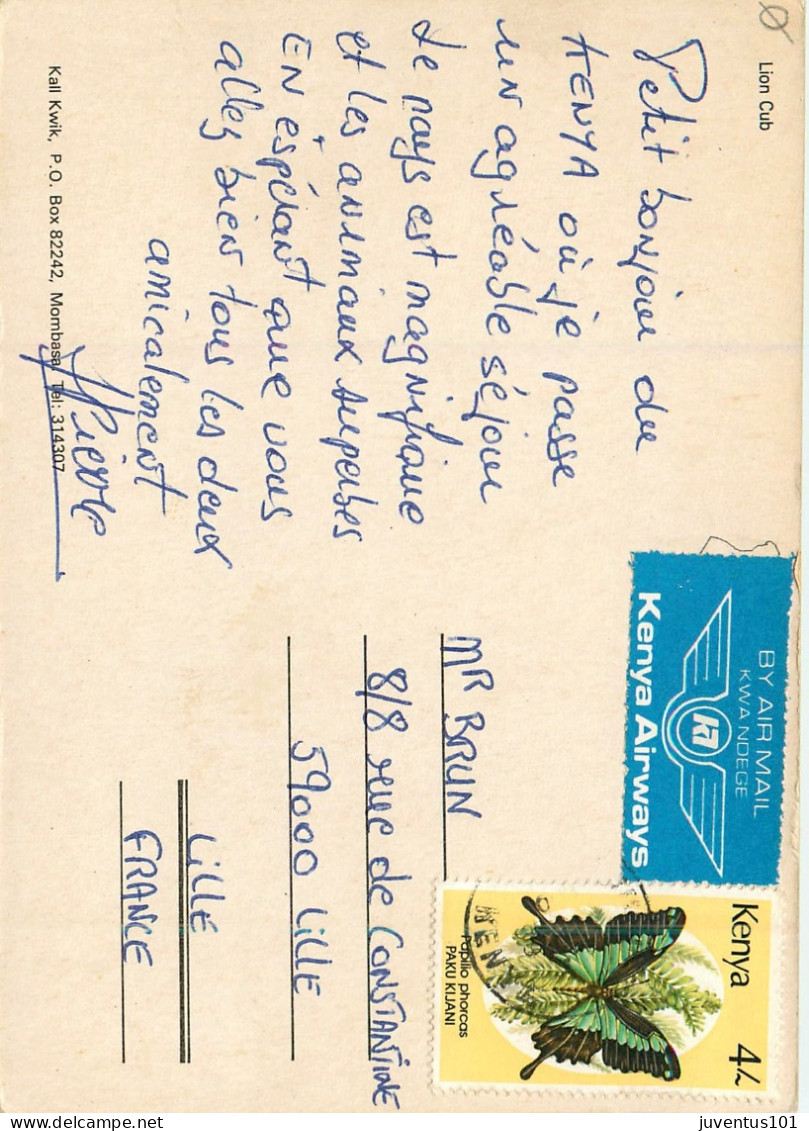 Lion Cub
Petit bonjour du
KENYA où je passe
un agréable séjour
Le pays est magnifique
et les animaux superbes
EN espérant que vous
allez bien tous les deux
amicalement
Pierre
Kall Kwik, P.O. Box 82242, Mombasa. Tel: 314307
BY AIR MAIL
KWA NDEGE
Kenya Airways
Kenya 4/-
Papilio phorcas
PAKU KIJANI
KENYA
MR BRUN
8/8 rue de CONSTANTINE
59000 LILLE
LILLE
FRANCE
www.delcampe.net
juventus101